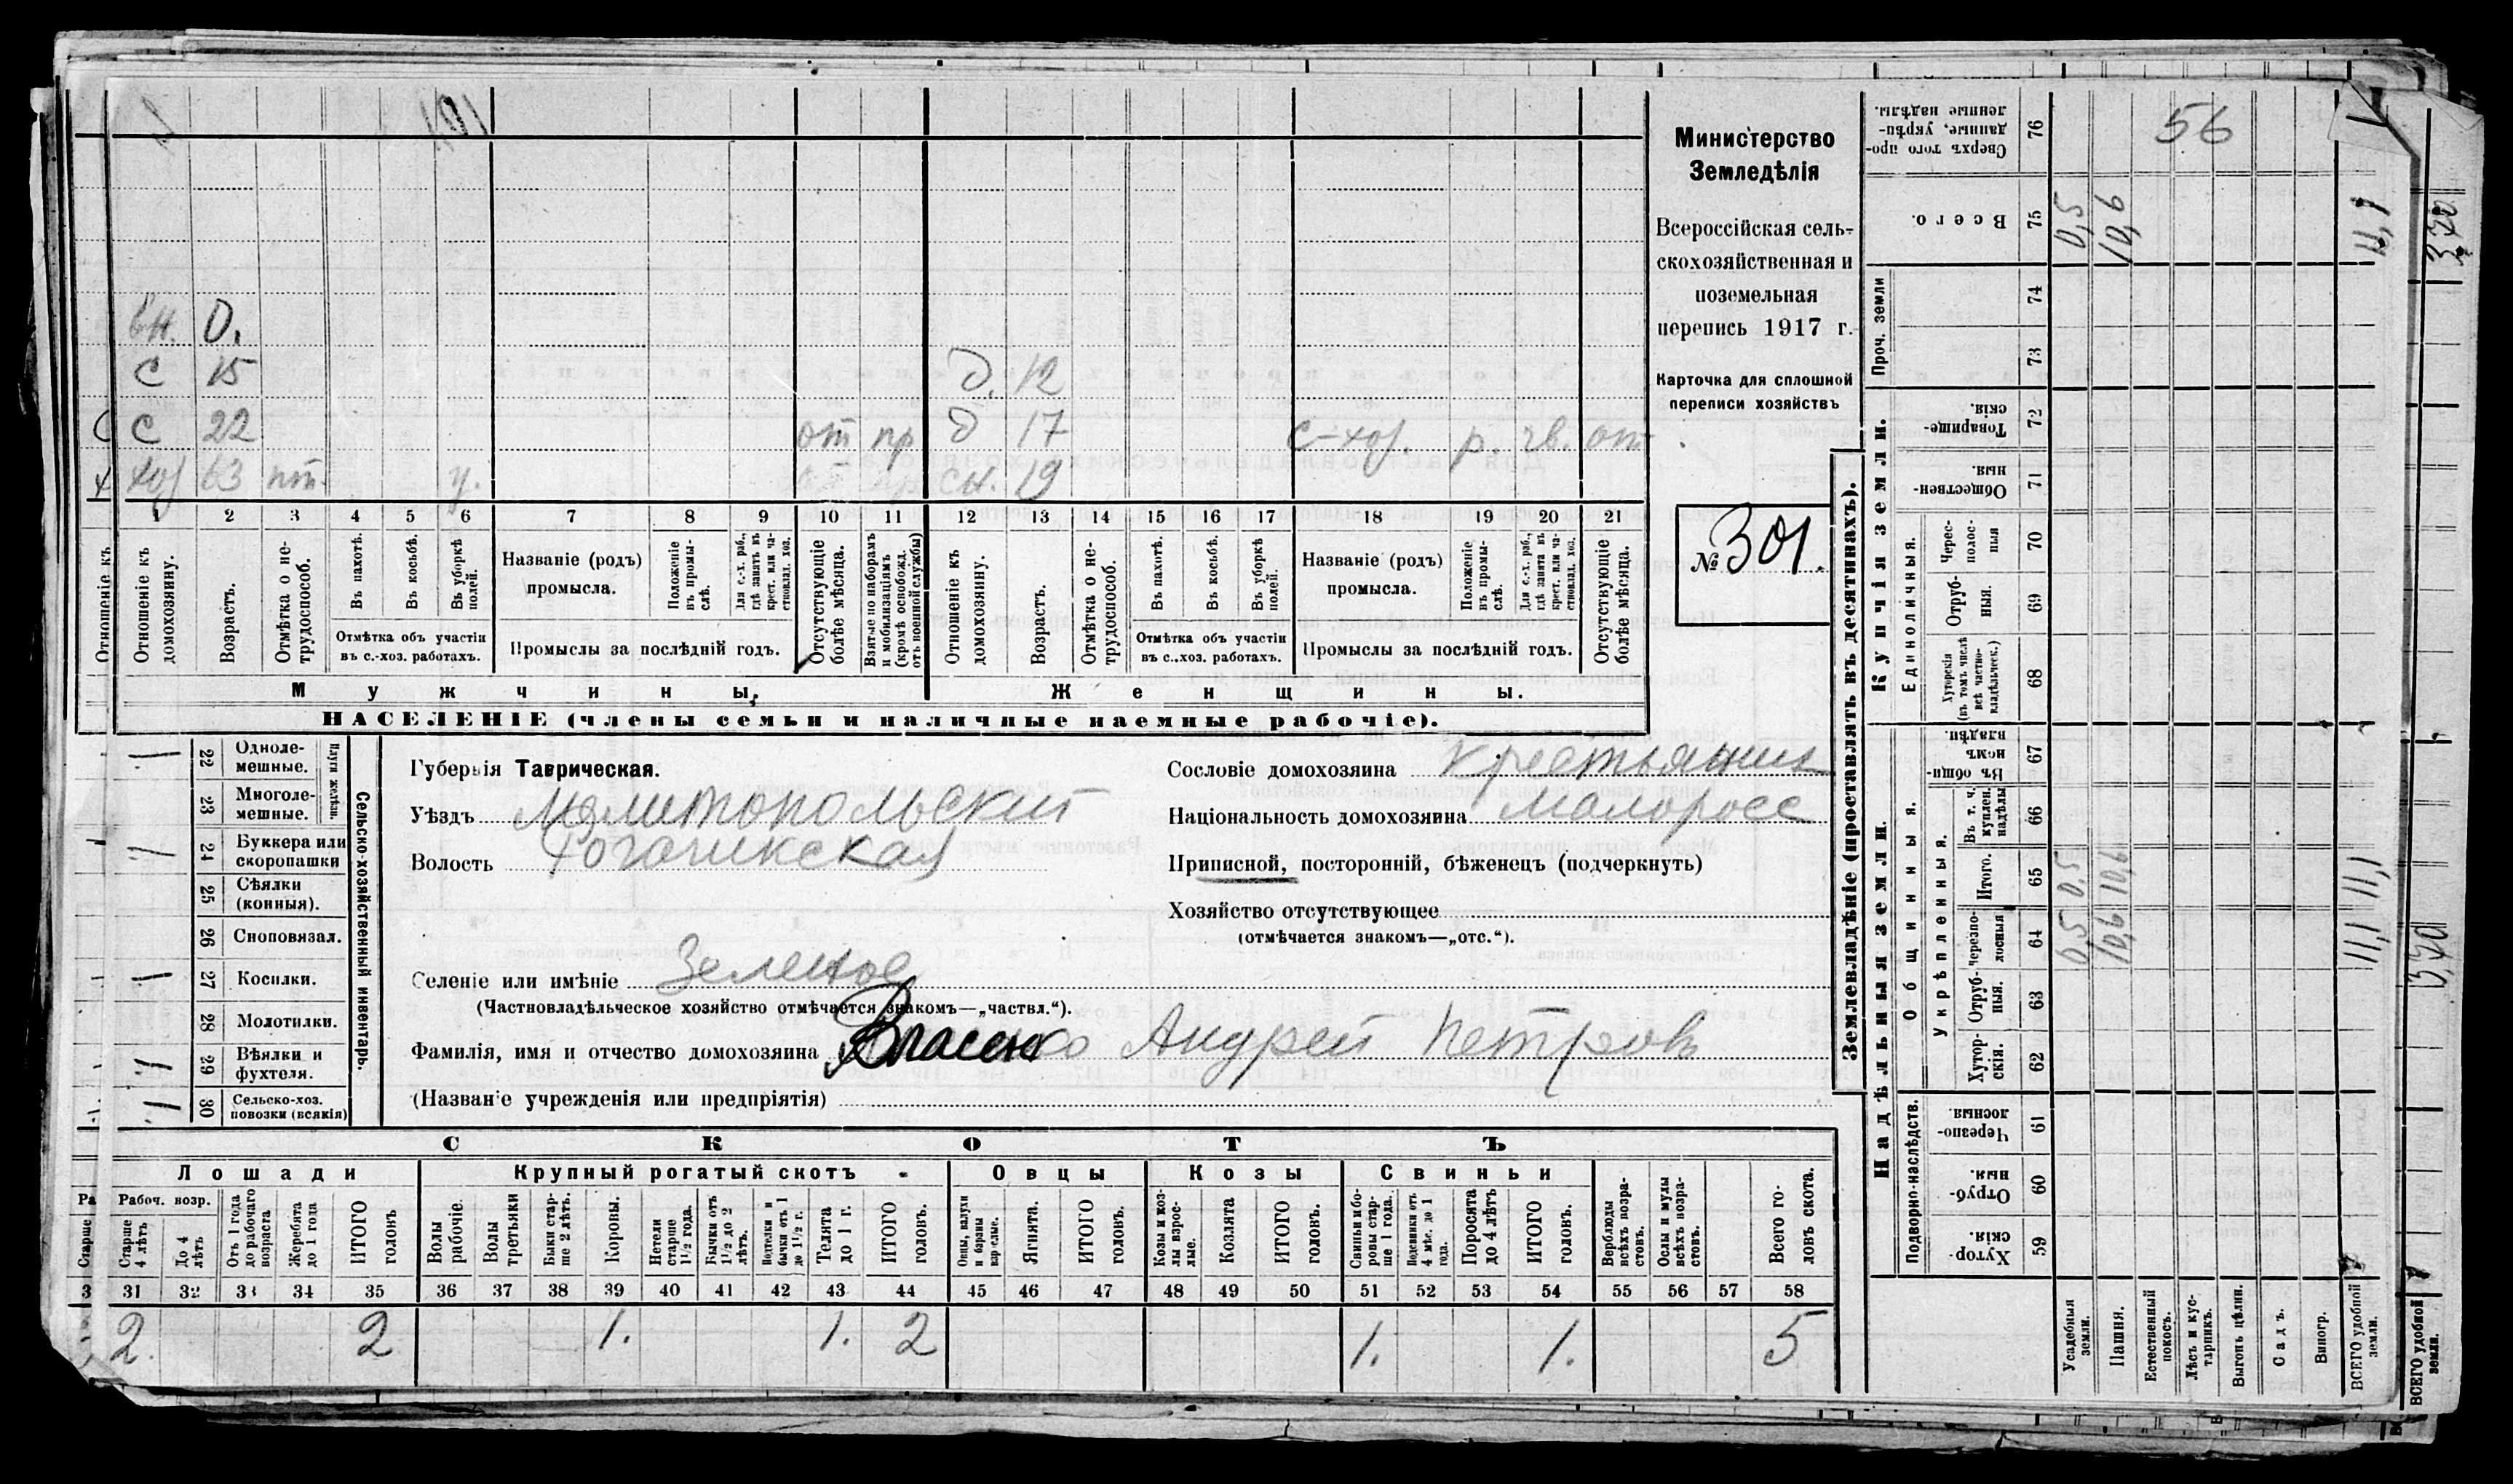 56
вн. 0.
с 15 д. 12
с 22 от пр д 17 с-хоз. р. чв. от
хоз 63 пт. у. сн. 19
1 2 3 4 5 6 7 8 9 10 11 12 13 14 15 16 17 18 19 20 21
Отношеніе къ домохозяину.
Возрастъ.
Отмѣтка о не-трудоспособ.
Въ пахотѣ.
Въ косьбѣ.
Въ уборкѣ полей.
Отмѣтка объ участіи
въ с.-хоз. работахъ.
Названіе (родъ)
промысла.
Положеніе въ промы-слѣ.
Для с.-х. раб., гдѣ занятъ въ крест. или ча-стновлад. хоз.
Промыслы за послѣдній годъ.
Отсутствующіе болѣе мѣсяца.
Взятые по наборамъ и мобилизаціямъ (кромѣ освобожд. отъ военной службы)
Отношеніе къ домохозяину.
Возрастъ.
Отмѣтка о не-трудоспособ.
Въ пахотѣ.
Въ косьбѣ.
Въ уборкѣ полей.
Отмѣтка объ участіи
въ с..хоз. работахъ.
Названіе (родъ)
промысла.
Положеніе въ промы-слѣ.
Для с.-х. раб., гдѣ занятъ въ крест. или ча-стновлад. хоз.
Промыслы за послѣдній годъ.
Отсутствующіе болѣе мѣсяца.
Мужчины. Женщины.
НАСЕЛЕНІЕ (члены семьи и наличные наемные рабочіе).
Министерство
Земледѣлія
Всероссійская сель-
скохозяйственная и
поземельная
перепись 1917 г.
Карточка для сплошной
переписи хозяйствъ
№ 301.
22 Одноле-мешные.
23 Многоле-мешные.
Плуги желѣзн.
24 Буккера или скоропашки
25 Сѣялки (конныя).
26 Сноповязал.
27 Косилки.
28 Молотилки.
29 Вѣялки и фухтеля.
30 Сельско-хоз. повозки (всякія)
Сельско-хозяйственный инвентарь.
Губернія Таврическая.
Уѣздъ Мелитопольский
Волость Рогачикская
Селеніе или имѣніе Зеленое
(Частновладѣльческое хозяйство отмѣчается знакомъ—„частвл.“).
Фамилія, имя и отчество домохозяина Власенко Андрей Петровъ
(Названіе учрежденія или предпріятія)
Сословіе домохозяина Крестьянинъ
Національность домохозяина Малоросс
Приписной, посторонній, бѣженецъ (подчеркнуть)
Хозяйство отсутствующее
(отмѣчается знакомъ—„отс.“).
СКОТЪ
Лошади Крупный рогатый скотъ Овцы Козы Свиньи
Рабоч. возр.
Старше 4 лѣтъ
До 4 лѣтъ
Отъ 1 года до рабочаго возраста
Жеребята до 1 года
ИТОГО головъ
Волы рабочіе.
Волы третьяки
Быки стар-ше 2 лѣтъ.
Коровы.
Нетели старше 1½ года.
Бычки отъ 1½ до 2 лѣтъ.
Телята до 1 г.
ИТОГО головъ.
Ягнята.
ИТОГО головъ.
Козы и коз-лы взрос-лые.
Козлята
ИТОГО головъ.
Свиньи и бо-ровы стар-ше 1 года.
Поросята до 4 лѣтъ
ИТОГО головъ.
Верблюды всѣхъ возра-стовъ.
Ослы и мулы всѣхъ возра-стовъ.
Всего го-ловъ скота.
31 32 33 34 35 36 37 38 39 40 41 42 43 44 45 46 47 48 49 50 51 52 53 54 55 56 57 58
2. 2 1. 1. 2 1. 1. 5
Землевладѣніе (проставлять въ десятинахъ).
Купчія земли.
Надѣльныя земли.
Сверхъ того про-данные, укрѣп-ленные надѣлы. 76
Всего. 75 0,5 10,6 11,1
Проч. земли 74 73
Товарище-скія. 72
Обществен-ныя. 71
Единоличныя.
Черес-полос-ныя 70
Отруб-ныя. 69
Хуторскія (въ томъ числѣ всѣ частно-владѣльческ.) 68
Общинныя.
Въ общи-номъ владѣн. 67
Укрѣпленныя.
Въ т. ч. куплен. надѣлы 66
Итого. 65 0,5 10,6 11,1
черезпо-лосныя 64 0,5 10,6 11,1
Отруб-ныя. 63
Хутор-скія. 62
Подворно-наслѣдств.
Черезпо-лосныя. 61
Отруб-ныя. 60
Хутор-скія. 59
Усадебныя земли.
Пашня.
Естественный покосъ.
Лѣсъ и кус-тарникъ.
Выгонъ цѣлин.
Садъ.
Виногр.
ВСЕГО удобной земли.
ВСЕГО удобной земли.